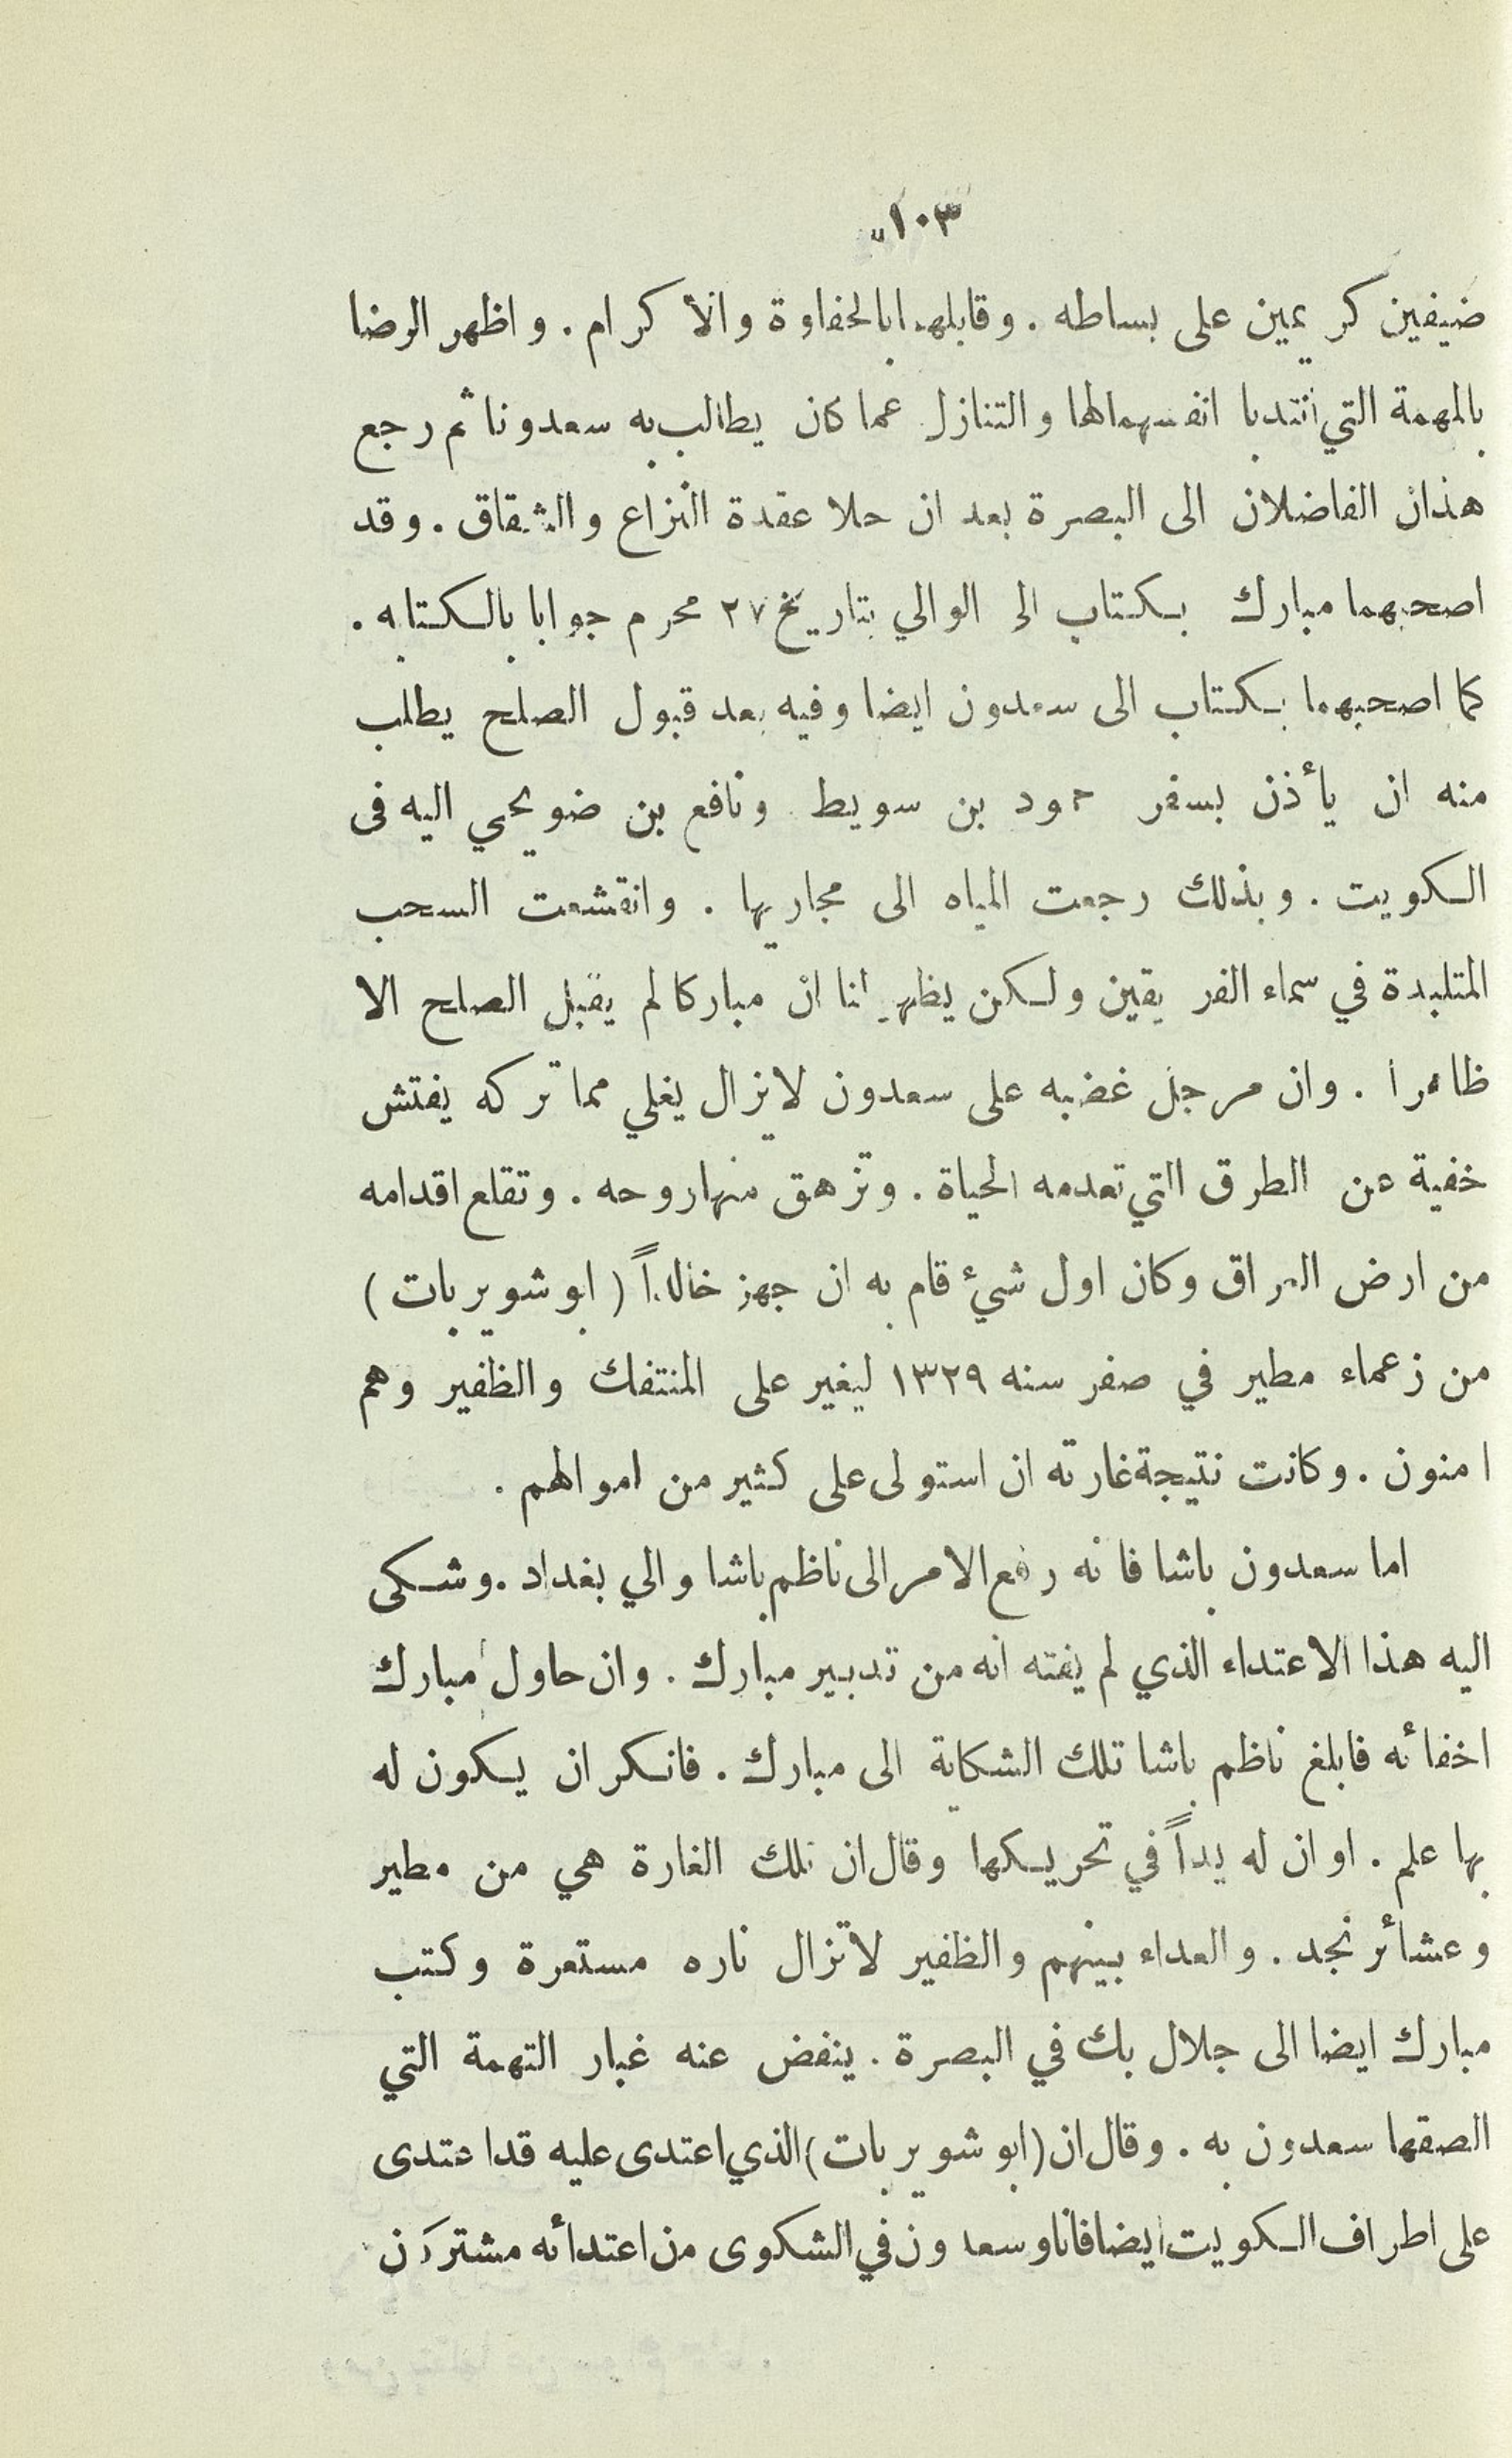 ١٠٣
ضيفين كريمين على بساطه . وقابلهما بالحفاوة والاكرام . واظهر الرضا
بالمهمة التي انتدبا انفسهما لها والتنازل عما كان يطالب به سعدونا ثم رجع
هذان الفاضلان الى البصرة بعد ان حلا عقدة النزاع والشقاق . وقد
اصحبهما مبارك بكتاب الى الوالي بتاريخ ٢٧ محرم جوابا بالكتابه .
كما اصحبهما بكتاب الى سعدون ايضا وفيه بعد قبول الصلح يطلب
منه ان يأذن بسفر حمود بن سويط ونافع بن ضويحي اليه فى
الكويت . وبذلك رجعت المياه الى مجاريها . وانقشعت السحب
المتلبدة في سماء الفريقين ولكن يظهر لنا ان مباركا لم يقبل الصلح الا
ظاهرا . وان مرجل غضبه على سعدون لايزال يغلي مما تركه يفتش
خفية عن الطرق التي تعدمه الحياة . وتزهق منها روحه . وتقلع اقدامه
من ارض العراق وكان اول شيء قام به ان جهز خالداً ( ابو شويربات )
من زعماء مطير في صفر سنه ١٣٢٩ ليغير على المنتفك والظفير وهم
امنون . وكانت نتيجة غارته ان استولى على كثير من اموالهم .
اما سعدون باشا فانه رفع الامر الى ناظم باشا والي بغداد . وشكى
اليه هذا الاعتداء الذي لم يفته انه من تدبير مبارك . وان حاول مبارك
اخفائه فابلغ ناظم باشا تلك الشكاية الى مبارك . فانكر ان يكون له
بها علم . او ان له يداً في تحريكها وقال ان تلك الغارة هي من مطير
وعشائر نجد . والعداء بينهم والظفير لاتزال ناره مستعرة وكتب
مبارك ايضا الى جلال بك في البصرة . ينفض عنه غبار التهمة التي
الصقها سعدون به . وقال ان (ابو شويربات) الذي اعتدى عليه قد اعتدى
على اطراف الكويت ايضا فانا وسعدون في الشكوى من اعتدائه مشتركان